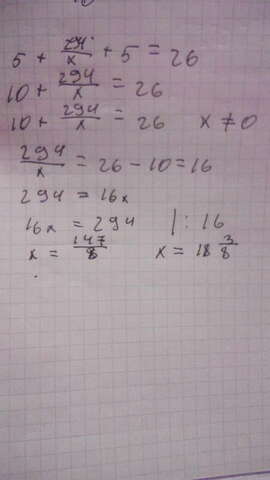 5 + 294/x + 5 = 26
10 + 294/x = 26
10 + 294/x = 26 x ≠ 0
294/x = 26 - 10 = 16
294 = 16x
16x = 294 | : 16
x = 147/8 x = 18 3/8